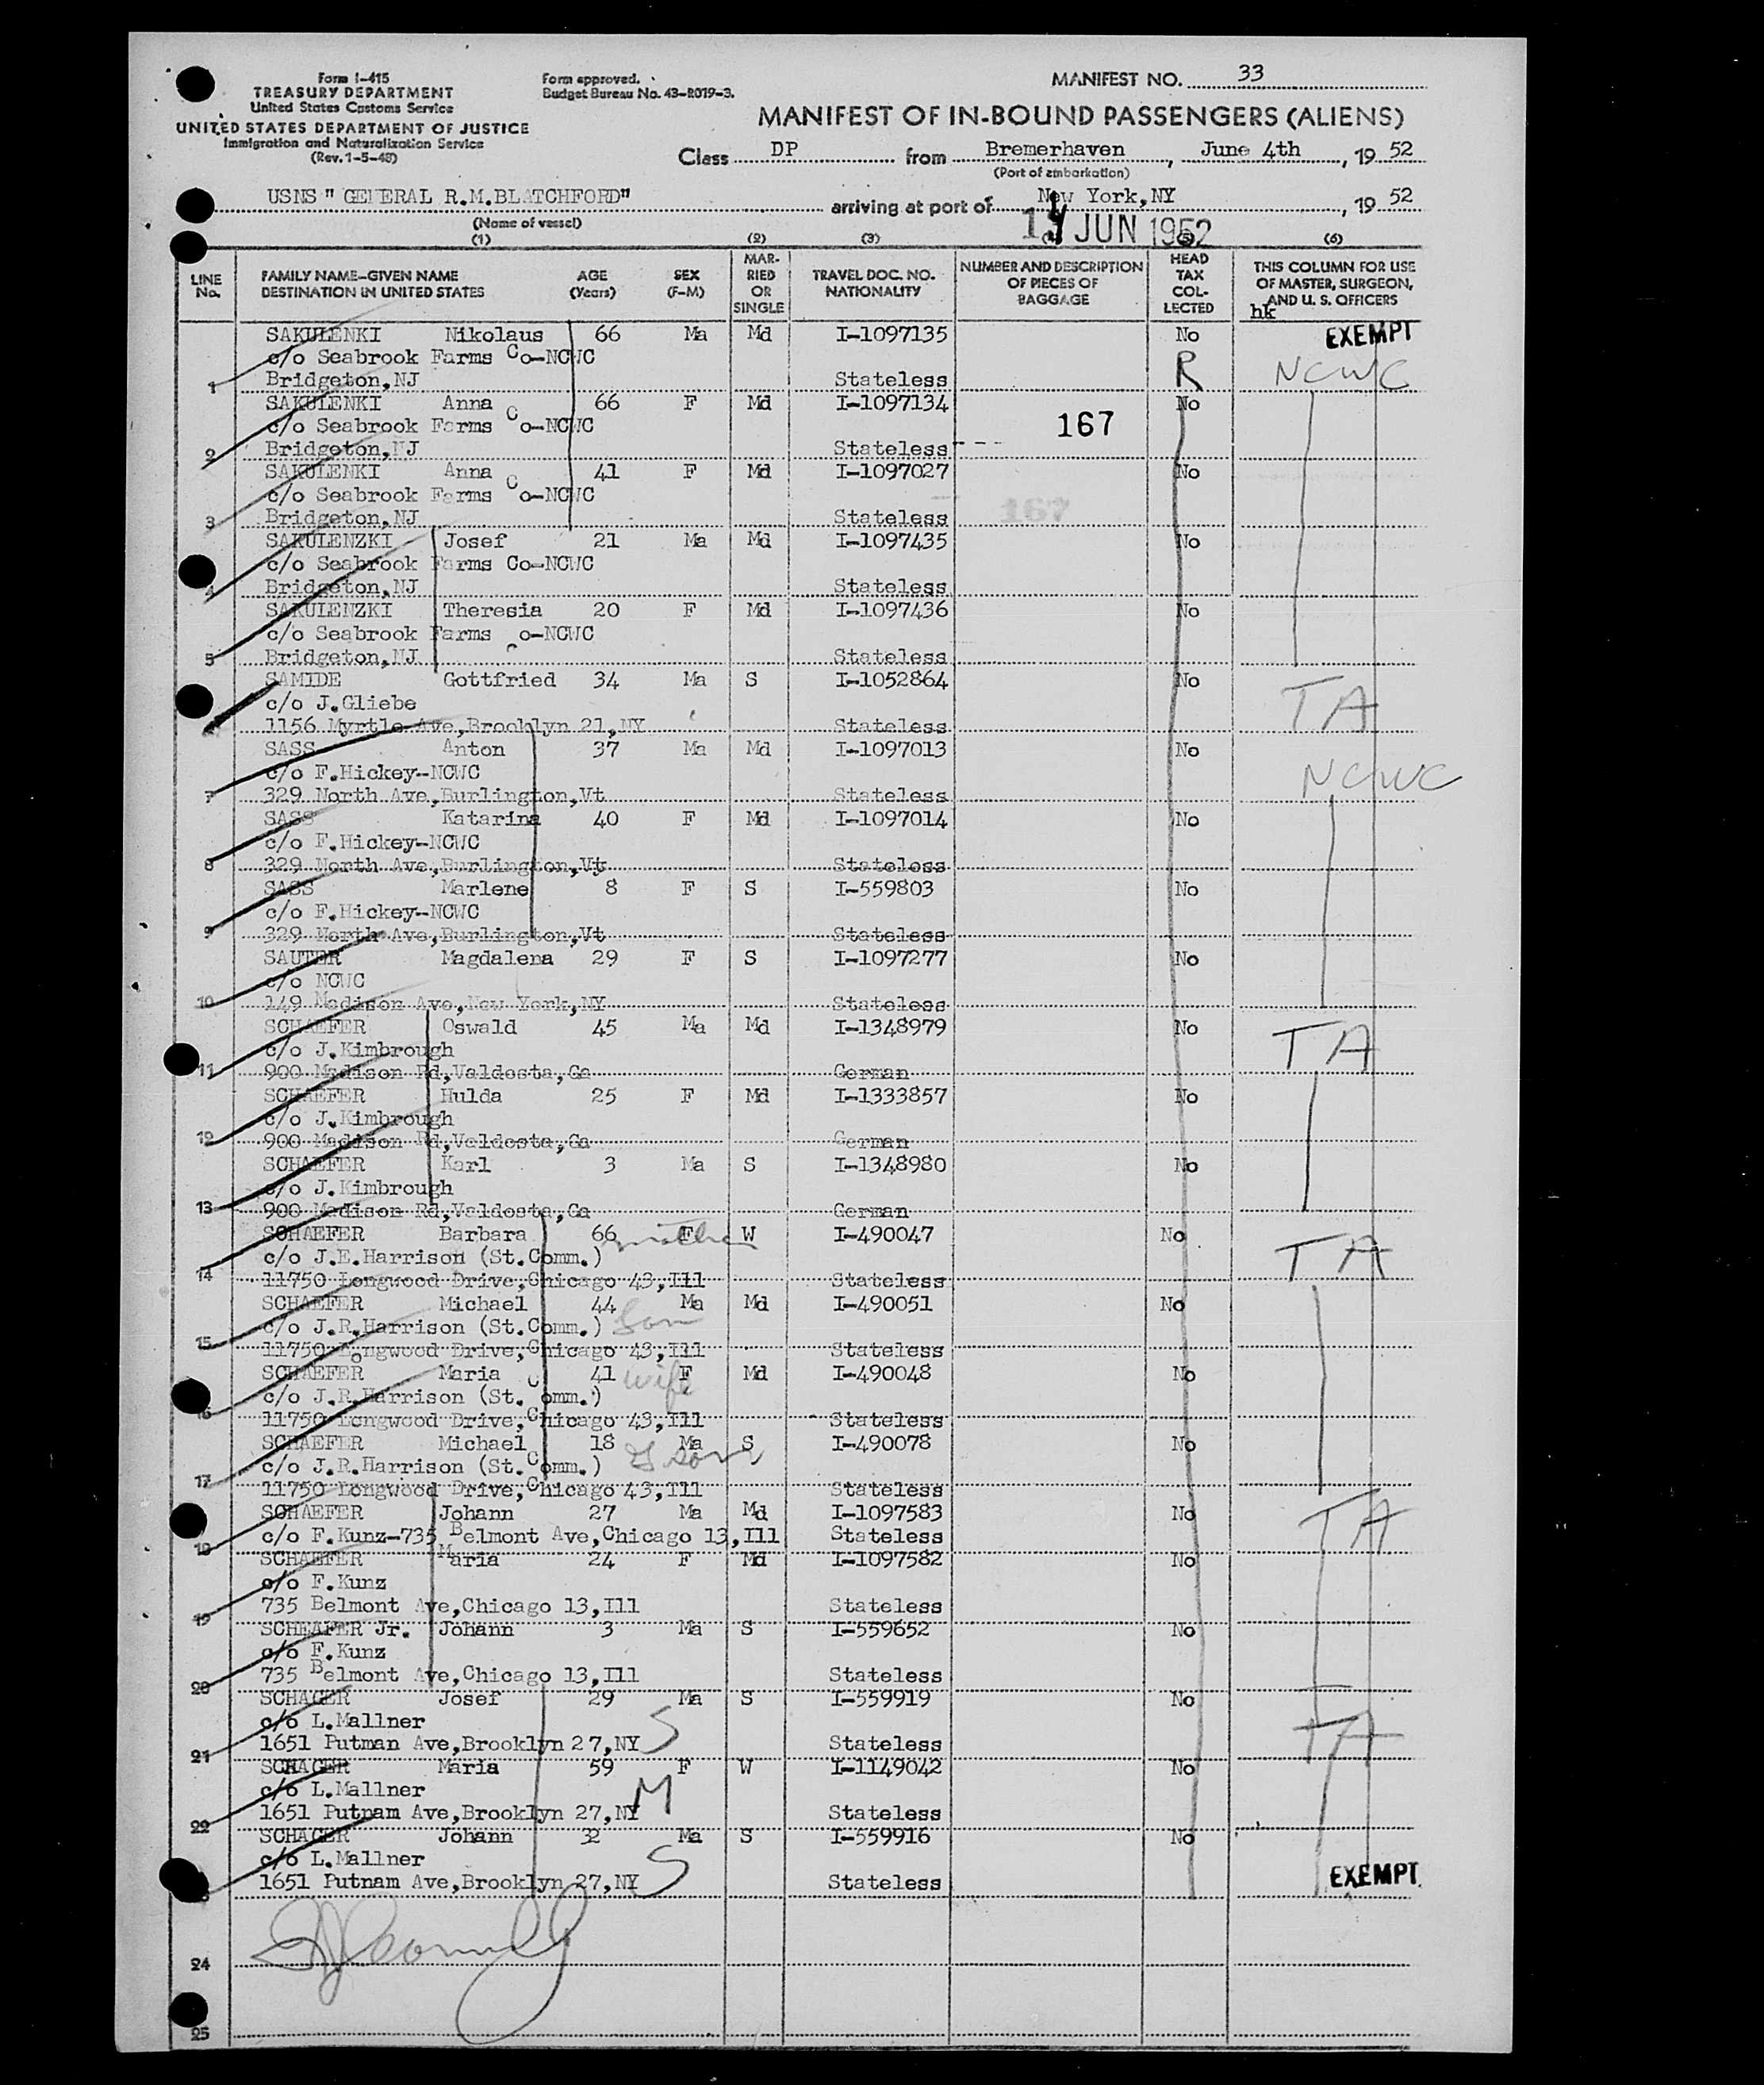 Form I-415
TREASURY DEPARTMENT
United States Customs Service
UNITED STATES DEPARTMENT OF JUSTICE
Immigration and Naturalization Service
(Rev. 1-5-48)
Form approved.
Budget Bureau No. 43-R019-3.
MANIFEST NO. 33
MANIFEST OF IN-BOUND PASSENGERS (ALIENS)
Class DP from Bremerhaven, June 4th, 19 52
(Port of embarkation)
USNS " GENERAL R.M.BLATCHFORD" arriving at port of New York,NY, 19 52
(Name of vessel)
JUN 1952
(1) (2) (3) (5) (6)
LINE No. FAMILY NAME–GIVEN NAME DESTINATION IN UNITED STATES AGE (Years) SEX (F-M) MARRIED OR SINGLE TRAVEL DOC. NO. NATIONALITY NUMBER AND DESCRIPTION OF PIECES OF BAGGAGE HEAD TAX COLLECTED THIS COLUMN FOR USE OF MASTER, SURGEON, AND U. S. OFFICERS
hk
SAKULENKI Nikolaus 66 Ma Md I-1097135 No EXEMPT
c/o Seabrook Farms Co-NCWC R NCWC
1 Bridgeton,NJ Stateless
SAKULENKI Anna 66 F Md I-1097134 No
c/o Seabrook Farms Co-NCWC 167
2 Bridgeton,NJ Stateless
SAKULENKI Anna 41 F Md I-1097027 No
c/o Seabrook Farms Co-NCWC 167
3 Bridgeton,NJ Stateless
SAKULENZKI Josef 21 Ma Md I-1097435 No
c/o Seabrook Farms Co-NCWC
4 Bridgeton,NJ Stateless
SAKULENZKI Theresia 20 F Md I-1097436 No
c/o Seabrook Farms o-NCWC
5 Bridgeton,NJ Stateless
SAMIDE Gottfried 34 Ma S I-1052864 No TA
c/o J.Gliebe
1156 Myrtle Ave,Brooklyn 21,NY Stateless
SASS Anton 37 Ma Md I-1097013 No
c/o F.Hickey--NCWC NCWC
7 329 North Ave,Burlington,Vt Stateless
SASS Katarina 40 F Md I-1097014 No
c/o F.Hickey--NCWC
8 329 North Ave,Burlington,Vt Stateless
SASS Marlene 8 F S I-559803 No
c/o F.Hickey--NCWC
9 329 North Ave,Burlington,Vt Stateless
SAUTER Magdalena 29 F S I-1097277 No
c/o NCWC
10 149 Madison Ave,New York,NY Stateless
SCHAEFER Oswald 45 Ma Md I-1348979 No TA
c/o J.Kimbrough
11 900 Madison Rd,Valdosta,Ga German
SCHAEFER Hulda 25 F Md I-1333857 No
c/o J.Kimbrough
12 900 Madison Rd,Valdosta,Ga German
SCHAEFER Karl 3 Ma S I-1348980 No
c/o J.Kimbrough
13 900 Madison Rd,Valdosta,Ga German
SCHAEFER Barbara 66 mother F W I-490047 No TA
c/o J.E.Harrison (St.Comm.)
14 11750 Longwood Drive,Chicago 43,Ill Stateless
SCHAEFER Michael 44 Ma Md I-490051 No
c/o J.R.Harrison (St.Comm.) Son
15 11750 Longwood Drive,Chicago 43,Ill Stateless
SCHAEFER Maria 41 wife F Md I-490048 No
c/o J.R.Harrison (St.Comm.)
16 11750 Longwood Drive,Chicago 43,Ill Stateless
SCHAEFER Michael 18 Ma S I-490078 No
c/o J.R.Harrison (St.Comm.) G son
17 11750 Longwood Drive,Chicago 43,Ill Stateless
SCHAEFER Johann 27 Ma Md I-1097583 No TA
18 c/o F.Kunz-735 Belmont Ave,Chicago 13,Ill Stateless
SCHAEFER Maria 24 F Md I-1097582 No
c/o F.Kunz
19 735 Belmont Ave,Chicago 13,Ill Stateless
SCHEAFER Jr. Johann 3 Ma S I-559652 No
c/o F.Kunz
20 735 Belmont Ave,Chicago 13,Ill Stateless
SCHAGER Josef 29 Ma S I-559919 No
c/o L.Mallner TA
21 1651 Putman Ave,Brooklyn 27,NY S Stateless
SCHAGER Maria 59 F W I-1149042 No
c/o L.Mallner
22 1651 Putnam Ave,Brooklyn 27,NY M Stateless
SCHAGER Johann 32 Ma S I-559916 No
c/o L.Mallner
1651 Putnam Ave,Brooklyn 27,NY S Stateless EXEMPT
24
25